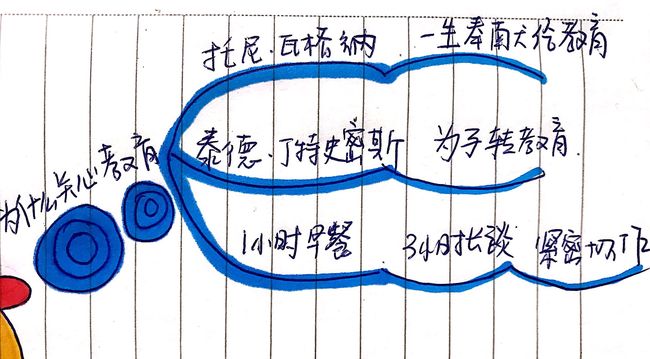 为什么关心教育
托尼·瓦格纳 一生奉献给教育
泰德·丁特史密斯 为子转教育
1小时早餐 3小时长谈 紧密